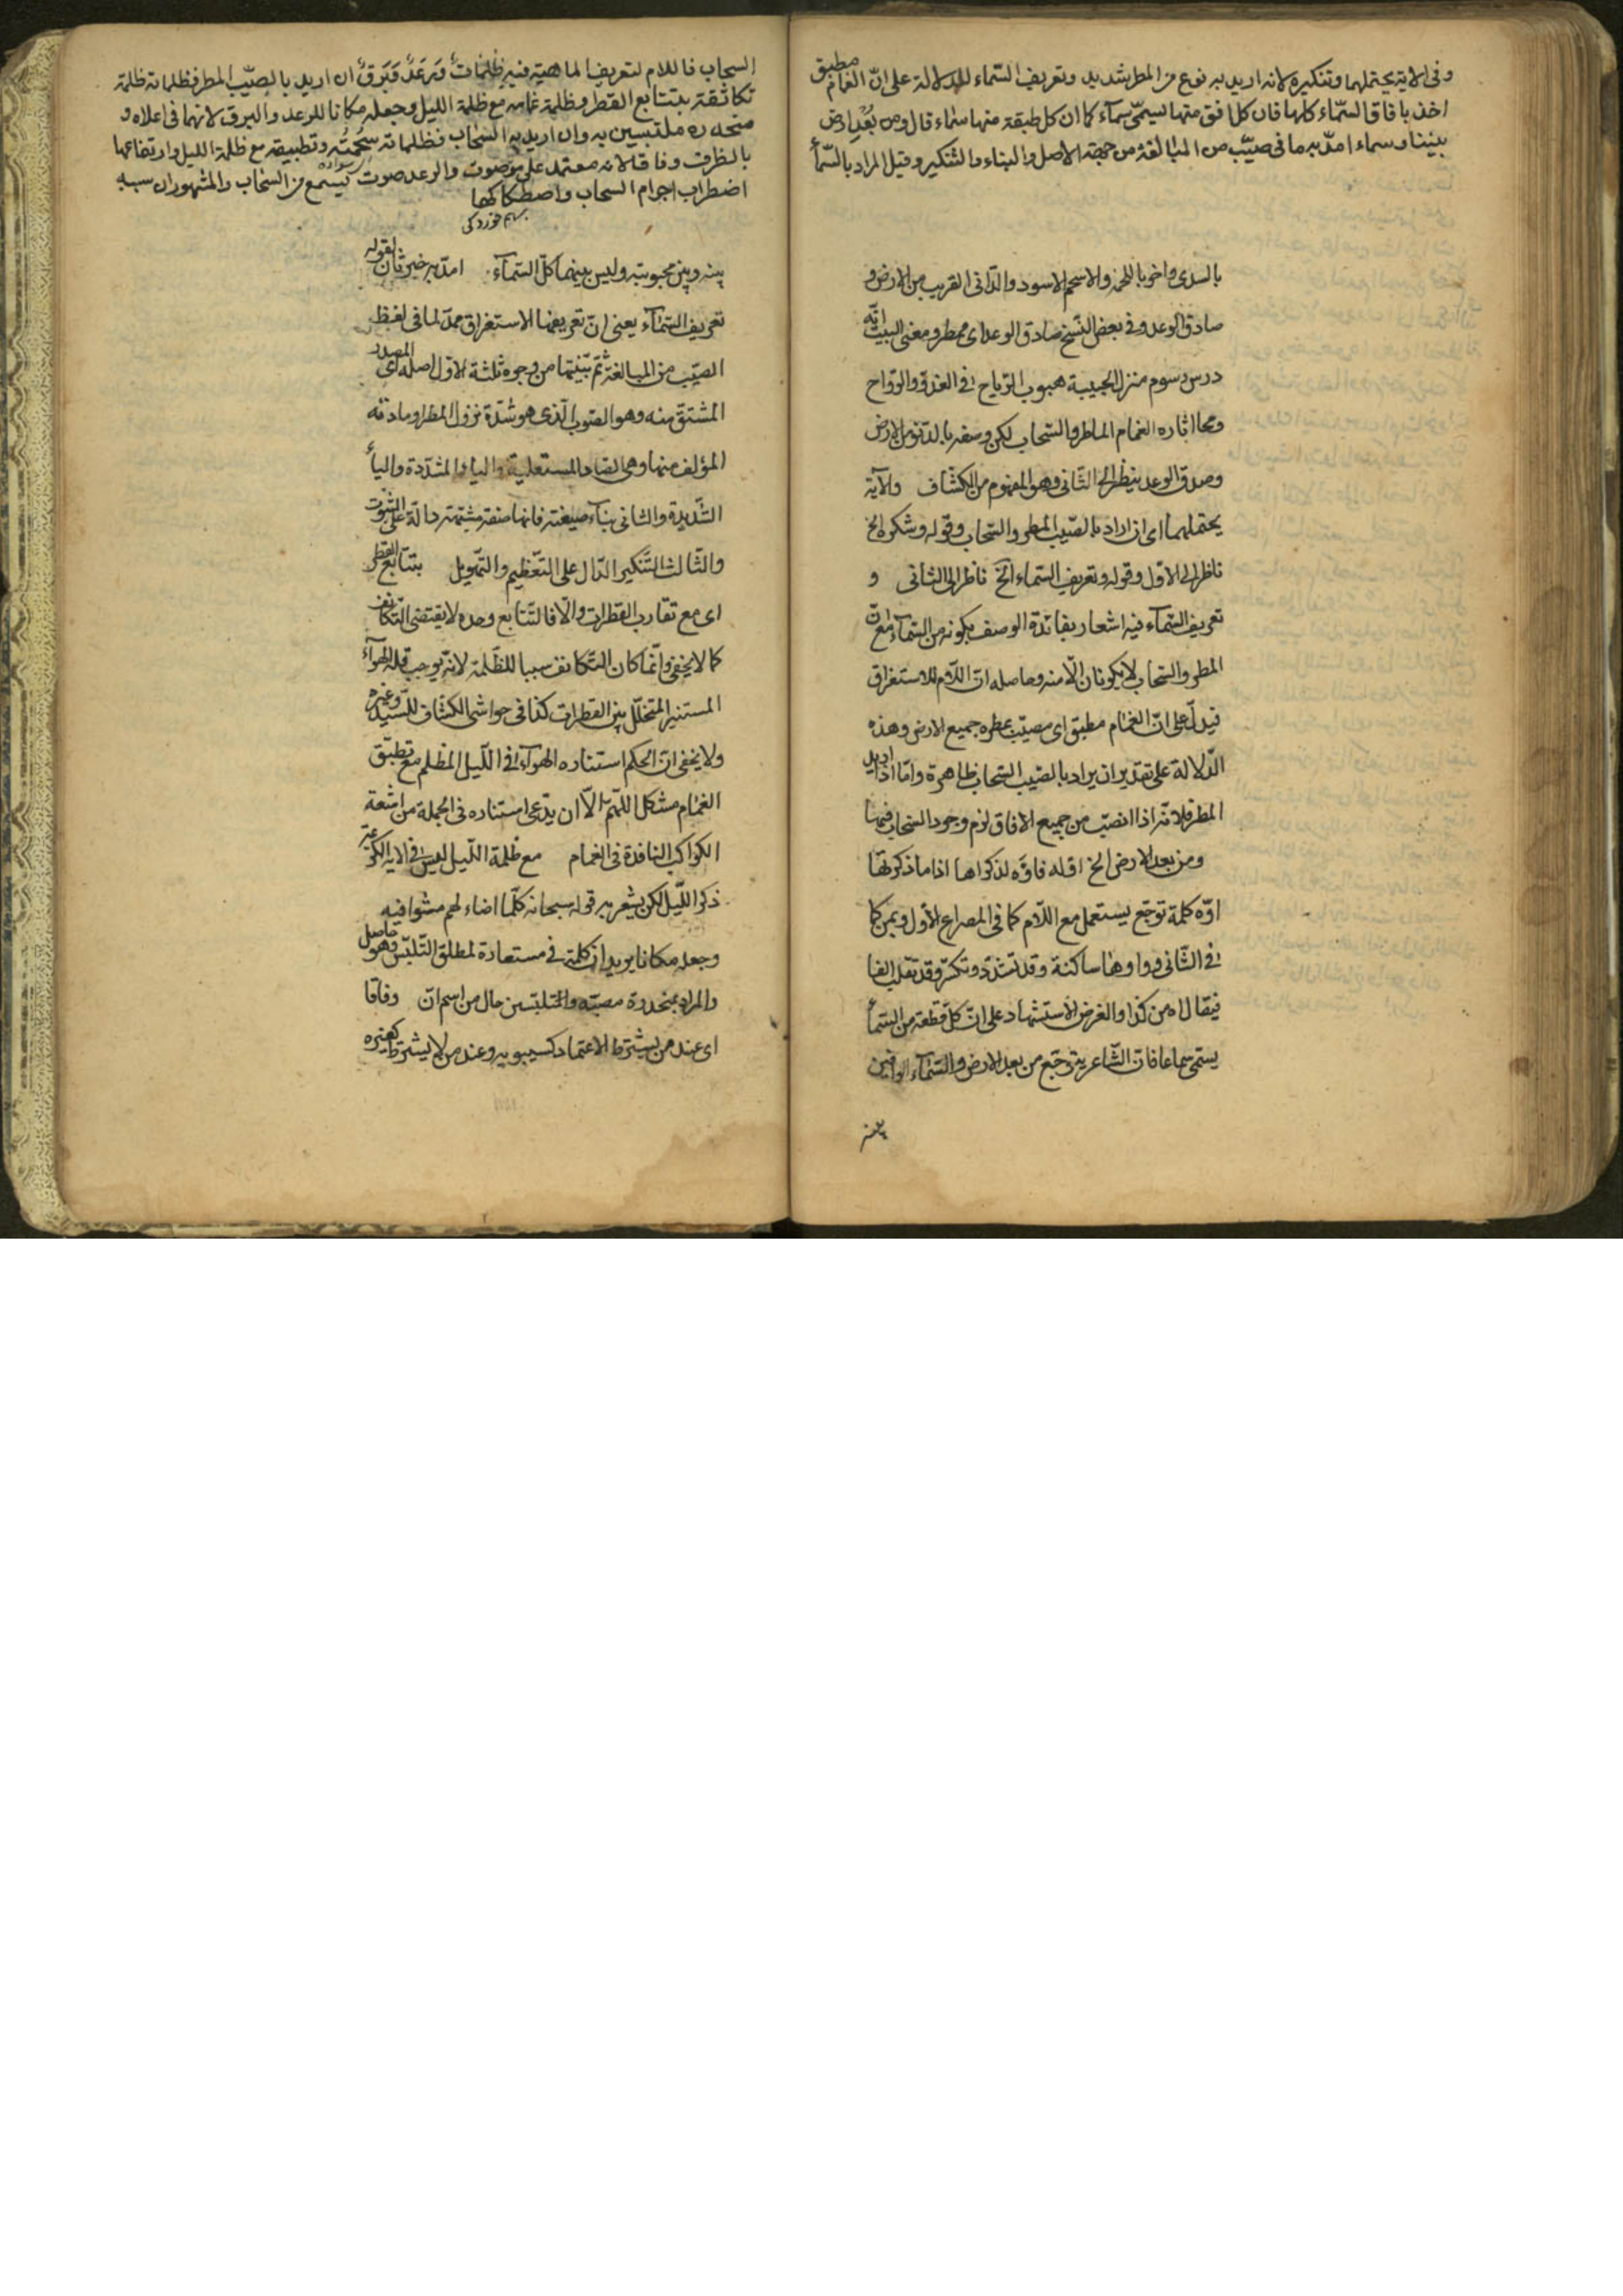 وفى الاية يحتملهما وتنكيره لانه اريد به نوع من المطر شديد وتعريف السماء للدلالة على انّ الغمام مطبق
اخذ بافاق السّماء كلها فان كل افق منها يسمّى سمآء كما ان كل طبقة منها سماء قال ومن بُعْدِ ارض
بيننا وسماء امدّ به ما فى صيّب من المبالغة من جهة الاصل والبناء والتنكير وقيل المراد بالسّمآء
بالسدى واخو باللحمة والاسحم الاسود والدّانى القريب من الارض و
صادق الوعد وفى بعض النّسخ صادق الوعد اى ممطر ومعنى البيت انّه
درس رسوم منزل الحبيبة هبوب الرّياح فى الغدوّ والرّواح
ومحا اثاره الغمام الماطر والسّحاب لكن وصفه بالدّنو من الارض
وصدق الوعد ينظر الى الثّانى وهو المفهوم من الكشّاف والآية
يحتملهما اى ان اراد بالصّيب المطر والسّحاب وقوله وتنكيره الخ
ناظر الى الاوّل وقوله وتعريف السّماء الخ ناظر الى الثانى و
تعريف السّمآء فيه اشعار بفائدة الوصف بكونه من السّمآء مع انّ
المطر والسّحاب لا يكونان الّا منه وحاصله انّ اللّام للاستغراق
فيدلّ على انّ الغمام مطبق اى مصيّب بمطره جميع الارض وهذه
الدّلالة على تقدير ان يراد بالصّيب السّحاب ظاهرة وامّا اذا اريد
المطر فلانّه اذا انصبّ من جميع الافاق لزم وجود السّحاب فيها
ومن بعد الارض الخ اوّله فاوّه لذكراها اذا ما ذكرتها
اوّه كلمة توجّع يستعمل مع اللّام كما فى المصراع الأول وبمن كما
فى الثّانى وواوها ساكنة وقد تشدّد وتكسّر وقد تقلب الفا
فيقال اه من كذا والغرض الاستشهاد على انّ كلّ قطعة من السّمآء
يسمّى سماء فانّ الشّاعر يتوجّع من بعد الارض والسّمآء الواقعين
السحاب فاللام لتعريف الماهية فيه ظُلُمَاتٌ وَرَعْدٌ وَبَرْقٌ ان اريد بالصيّب المطر فظلماته ظلمة
تكاثفه بتتابع القطر وظلمة غمامه مع ظلمة الليل وجعله مكانا للرعد والبرق لانهما فى اعلاه و
منحدره ملتبسين به وان اريد به السحاب فظلماته سُحْمَتُه وتطبيقه مع ظلمة الليل وارتفاعها
سواده
بالظرف وفاقا لانه معتمد على موصوف والرعد صوت يسمع من السّحاب والمشهور ان سببه
اضطراب اجرام السحاب واصطكاكها
بهم خوردكى
بينه وبين محبوبته وليس بينهما كلّ السّمآء امدّ به خبر ثان لقوله
تعريف السّمآء يعنى انّ تعريفها الاستغراق ممدّ لما فى لفظ
الصيّب من المبالغة ثمّ بيّنها من وجوه ثلثة الاوّل اصله اى المصدر
المشتقّ منه وهو الصّوب الّذى هو شدّة نزول المطر ومادته
المؤلف منها وهى الصّاد المستعلية والياء المشدّدة والباء
الشّديدة والثانى بناء صيغته فانها صفة مشبّهة دالّة على الثبوت
والثّالث التّنكير الدّال على التّعظيم والتّهويل بتتابع القطر
اى مع تقارب القطرات والّا فالتّتابع وحده لا يقتضى التّكاثف
كما لا يخفى وانّما كان التّكاثف سببا للظّلمة لانّه يوجب قلة الهوآء
المستنير المتخلّل بين القطرات كذا فى حواشى الكشّاف للسّيد وغيره
ولا يخفى انّ الحكم استناره الهوآء فى اللّيل المظلم مع تطبّق
الغمام مشكل اللّهمّ الّا ان يدّعى استناره فى الجملة من اشعة
الكواكب النافذة فى الغمام مع ظلمة اللّيل ليس فى الاية الكريمة
ذكر اللّيل لكن يشعر به قوله سبحانه كلّما اضاء لهم مشوا فيه
وجعله مكانا يريد انّ كلمة فى مستعارة لمطلق التّلبّس وهو حاصل
والمراد بمنحدره مصبّه والمتلبّسين حال من اسم انّ وفاقا
اى عند من يشترط الاعتماد كسيبويه وعند من لا يشترط كغيره